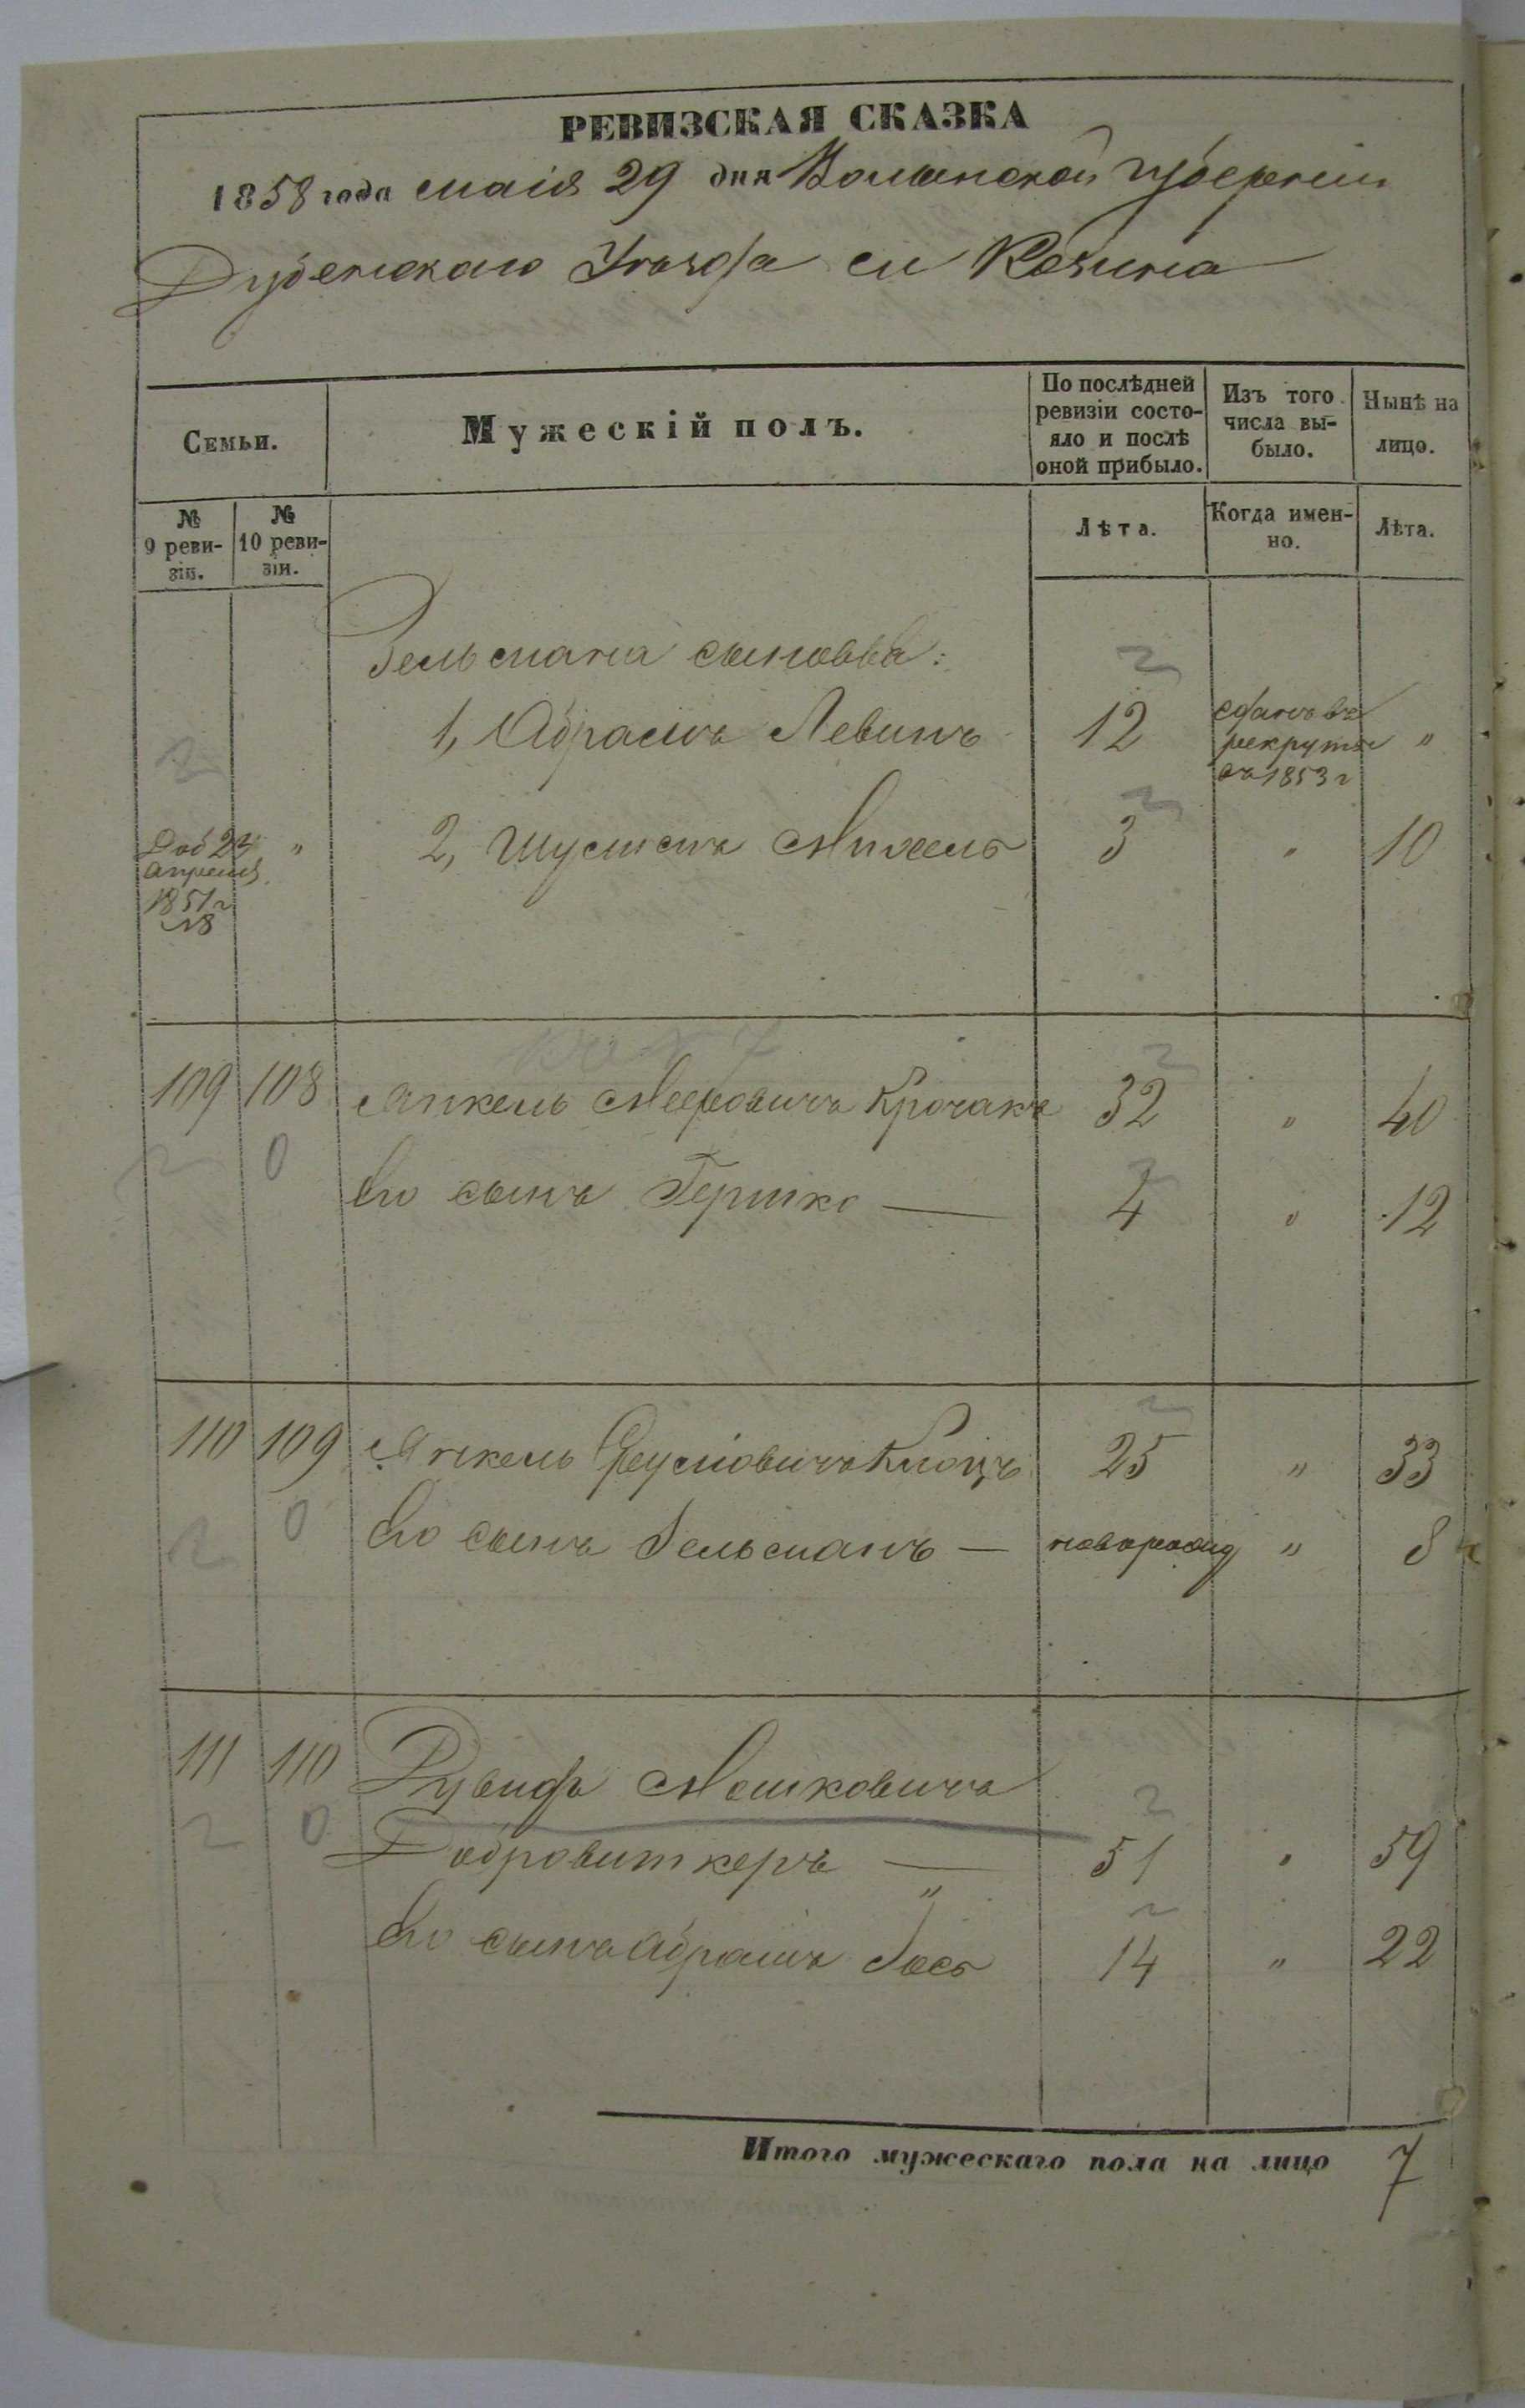 РЕВИЗСКАЯ СКАЗКА
1858 года маія 29 дня Волынской губерніи
Дубенскаго Уѣзда м Козина
Семьи.
Мужескій полъ.
По послѣдней ревизіи состояло и послѣ оной прибыло.
Изъ того числа выбыло.
Нынѣ на лицо.
№ 9 ревизіи.
№ 10 ревизіи.
Лѣта.
Когда именно.
Лѣта.
Зельмана сыновья:
1, Абрамъ Левинъ 12 сданъ въ рекруты въ 1853 г "
Доб 23 апреля 1851 г №8 " 2, Михель 3 " 10
109 108 Янкель Мееровичъ Крочакъ 32 " 40
Его сынъ Гершко — 4 " 12
110 109 Янкель Клоцъ 25 " 33
Его сынъ Зельманъ — новорожд " 8
111 110 Рувинъ Мошковичъ
Добровиткеръ — 51 " 59
Его сынъ Абрамъ Іось 14 " 22
Итого мужескаго пола на лицо 7